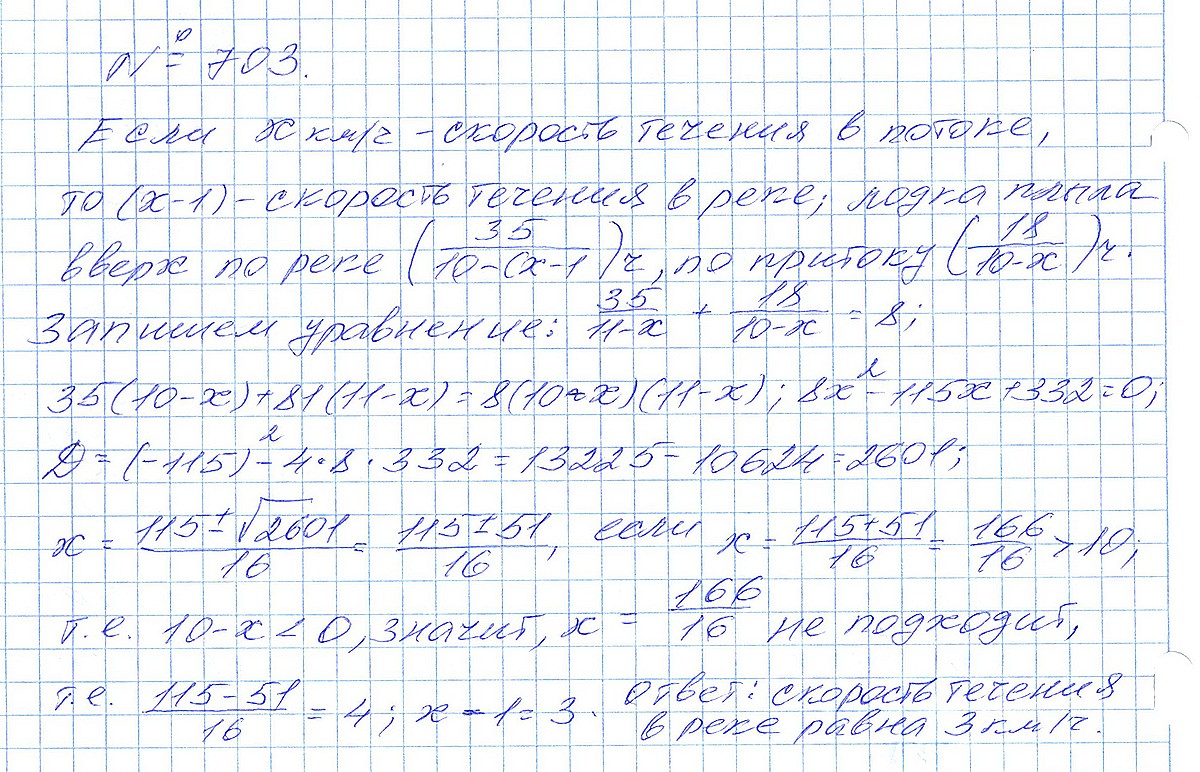 № 703.
Если x км/ч - скорость течения в потоке,
то (x-1) - скорость течения в реке; лодка плыла
вверх по реке (35/(10-(x-1))ч, по притоку (18/(10-x))ч.
Запишем уравнение: 35/(11-x) + 18/(10-x) = 8;
35(10-x)+81(11-x)=8(10-x)(11-x); 8x²-115x+332=0;
D=(-115)²-4·8·332=13225-10624=2601;
x = (115±√2601)/16 = (115±51)/16, если x = (115+51)/16 = 166/16 > 10;
т.е. 10-x<0, значит, x = 166/16 не подходит,
т.е. (115-51)/16 = 4; x-1=3. Ответ: скорость течения
в реке равна 3 км/ч.